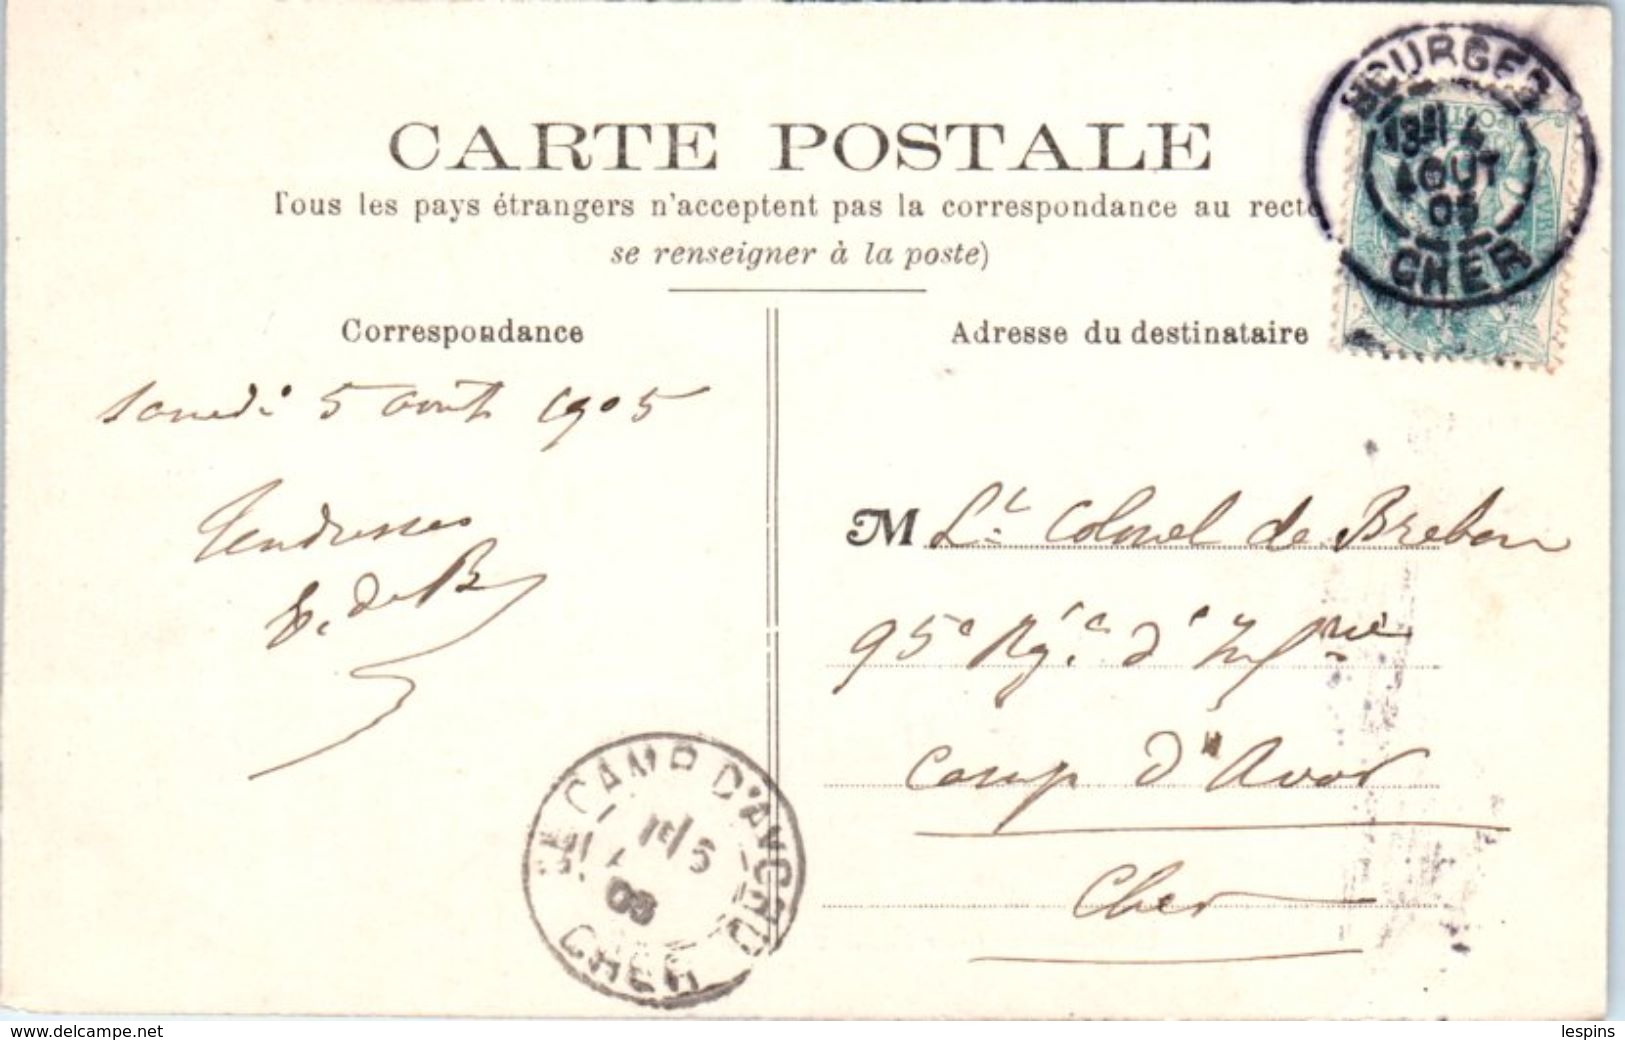 CARTE POSTALE
Tous les pays étrangers n'acceptent pas la correspondance au recto
se renseigner à la poste)
Correspondance
Adresse du destinataire
BOURGES
4
AOUT
05
CHER
samedi 5 août 1905
Tendresses
E. de B
M Lt Colonel de Brebon
95e Rgt d'Infrie
Camp d'Avor
Cher
CAMP D'AVORD
05
CHER
www.delcampe.net
lespins